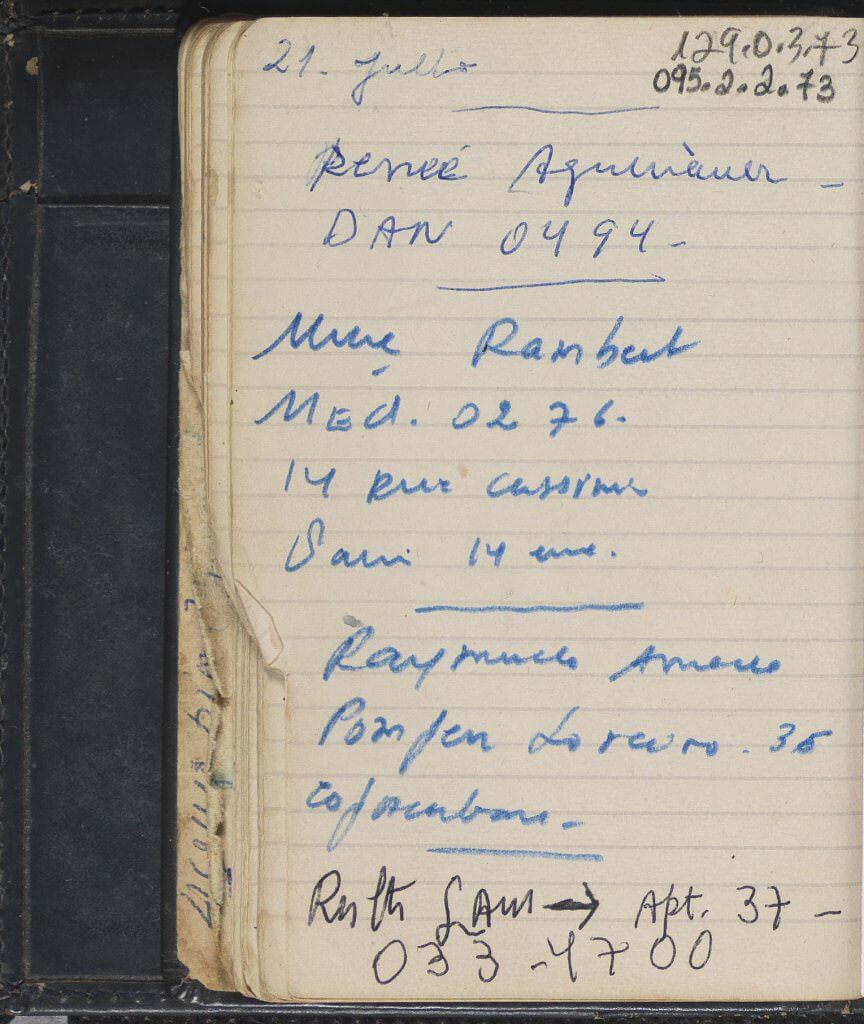 21. Julho
129.0.3.73
095.2.2.73
Renée
DAN 0494-
Mme Rambert
MEd. 02 76.
14 rue cassini
Paris 14 eme.
Raymundo
Pompeu Loreiro. 35
Copacabana-
Ruth → Apt. 37 -
033-4700